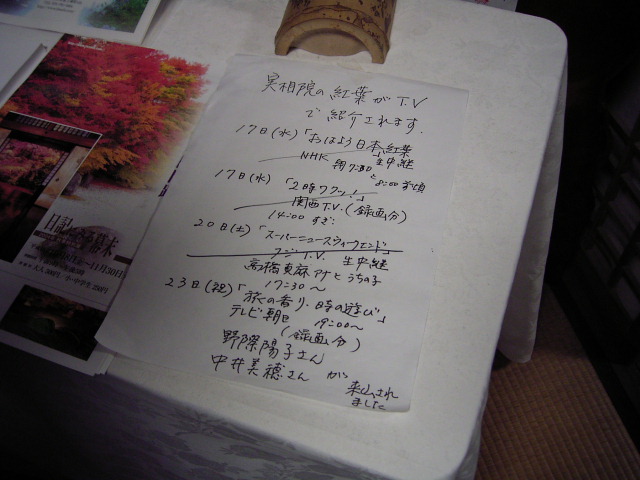 実相院の紅葉がT.V
で紹介されます.
17日(水)「おはよう日本紅葉
生中継」
NHK 朝7:30と
8:00前頃
17日(水)「2時ワクッ!」
関西T.V.(録画分)
14:00すぎ.
20日(土)「スーパーニュースウィークエンド」
フジT.V. 生中継
高橋真麻アナとうちの子
17:30〜
23日(祝)「旅の香り・時の遊び」
テレビ朝日 19:00〜
(録画分)
野際陽子さん
中井美穂さんが
来山され
ました
11月30日